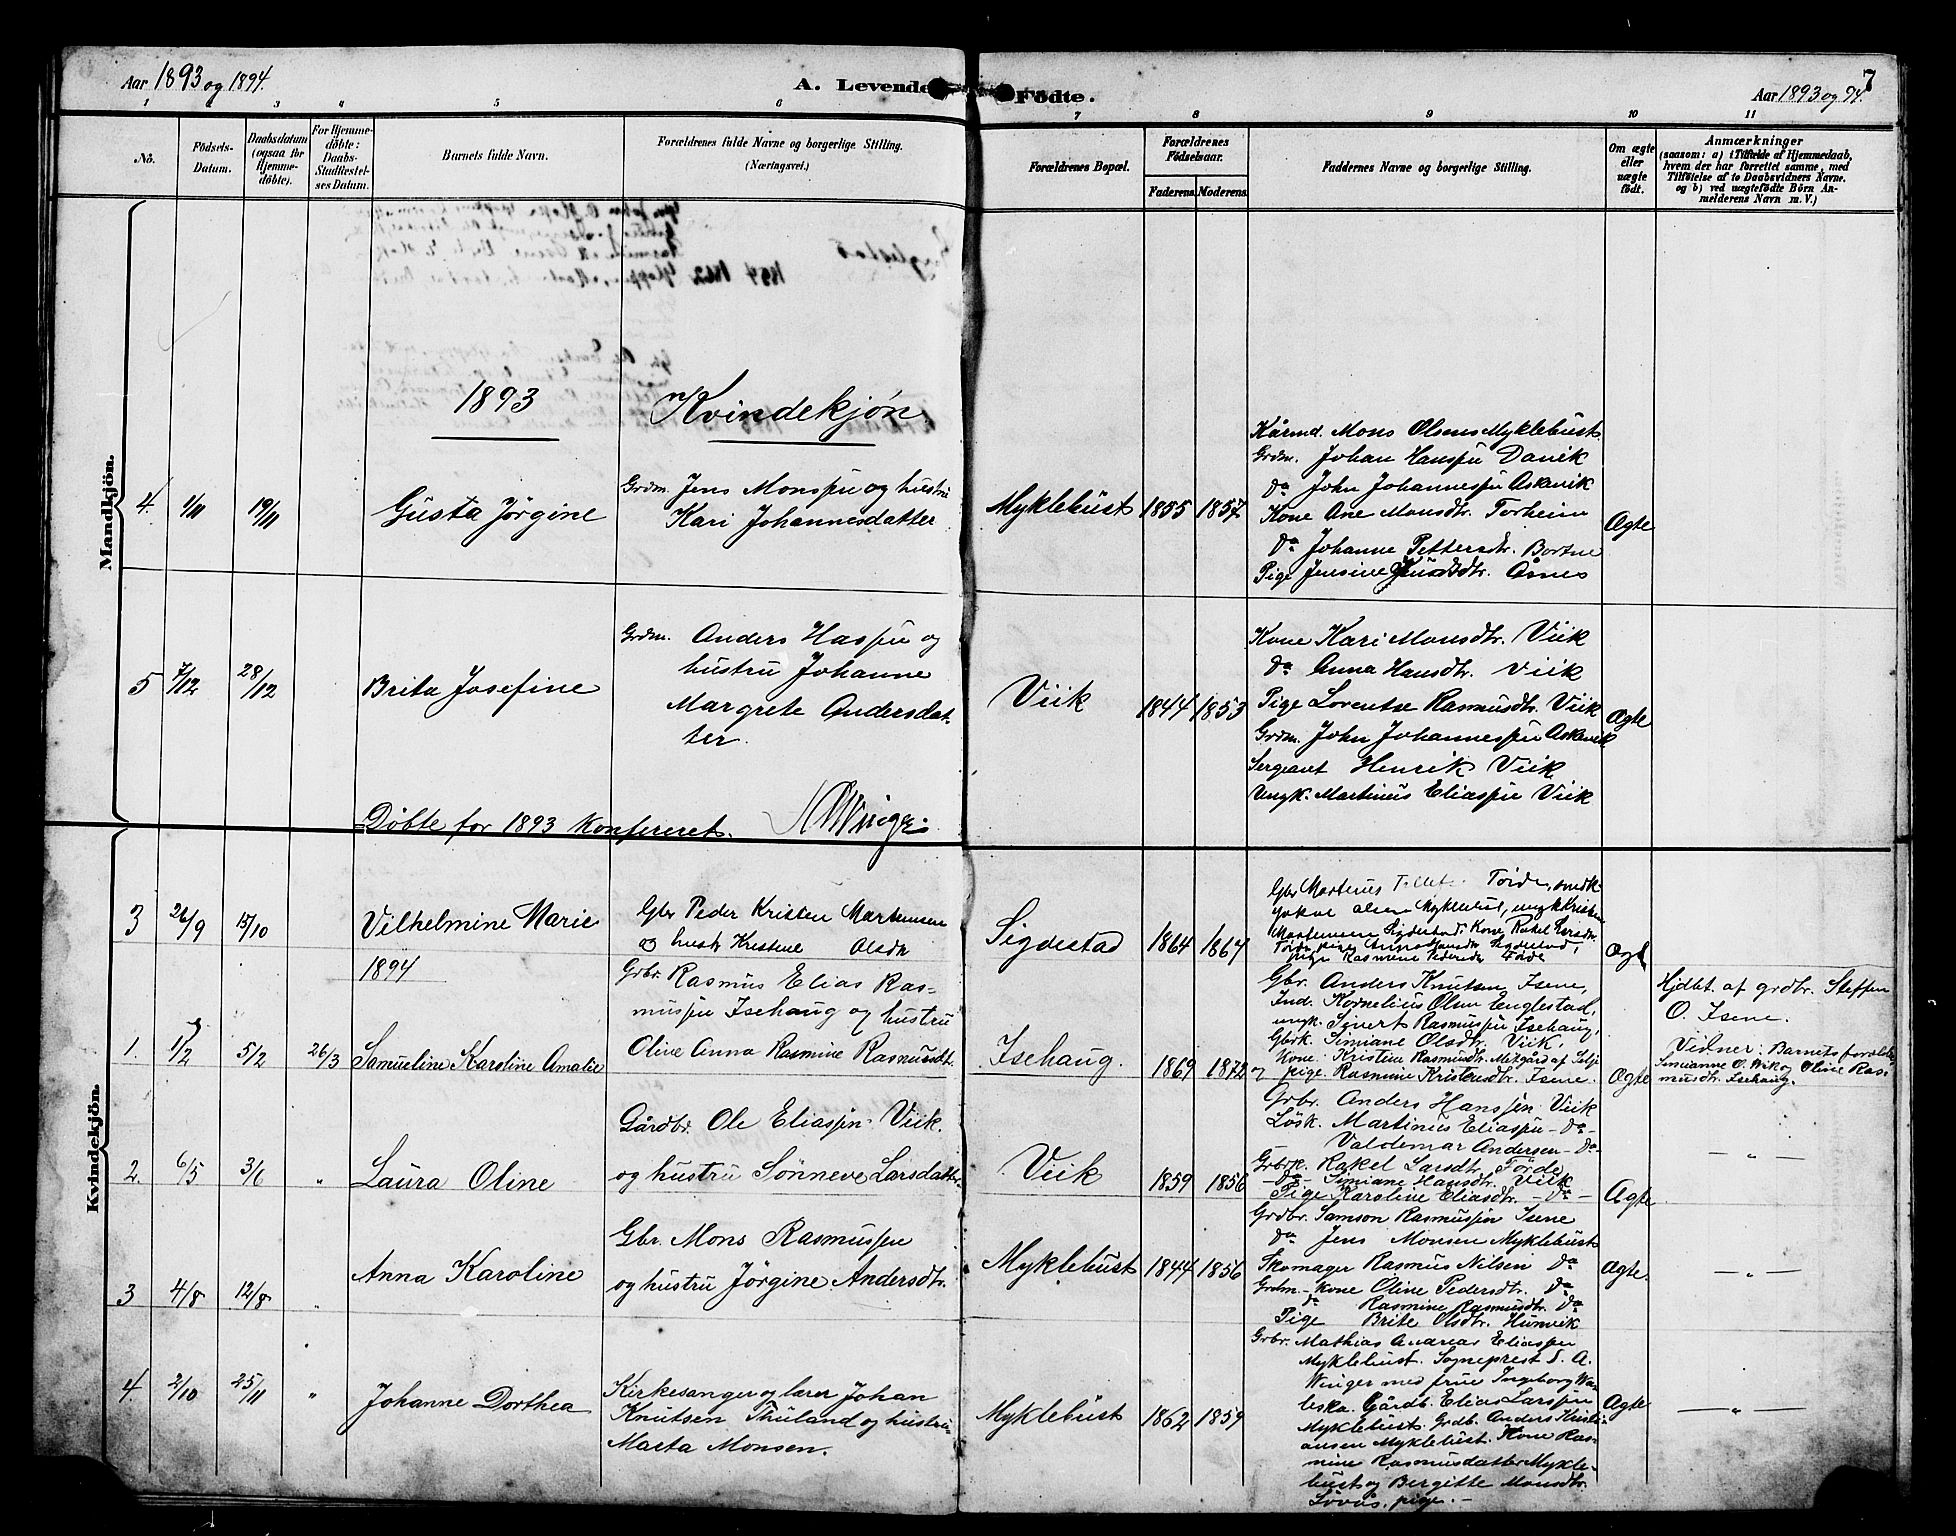 Aar 1893 og 1894.
A. Levende Födte.
7
Aar 1893 og 94.
1 3 4 5 6 7 8 9 10 11
No.
Födsels-
Datum.
Daabsdatum
(ogsaa for
Hjemme-
döbte).
For Hjemme-
döbte:
Daabs-
Stadfæstel-
ses Datum.
Barnets fulde Navn.
Forældrenes fulde Navne og borgerlige Stilling.
(Næringsvei.)
Forældrenes Bopæl.
Forældrenes
Födselsaar.
Faderens. Moderens.
Faddernes Navne og borgerlige Stilling.
Om ægte
eller
uægte
födt.
Anmærkninger
(saasom: a) i Tilfælde af Hjemmedaab,
hvem der har forrettet samme, med
Tilföielse af to Daabsvidners Navne,
og b) ved uægtefödte Börn An-
melderens Navn m. V.)
Mandkjön.
1893
Kvindekjøn
4. 1/11 19/11
Gusta Jörgine
Grdm. Jens Monssen og hustru
Kari Johannesdatter
Myklebust 1855 1857
Kårmd. Mons Olsens Myklebust
Grdm. Johan Hanssen Davik
do John Johannessen Askevik
Kone Ane Monsdtr. Torheim
do Johanne Pettersdtr. Bortne
Pige Jensine Knudsdtr. Åsnes
Ægte
5 7/12 28/12
Brita Josefine
Grdm. Anders Hassen og
hustru Johanne
Margrete Andersdat-
ter.
Viik 1844 1853
Kone Kari Monsdtr. Viik
do Anna Hansdtr. Viik
Pige Lorentse Rasmusdtr. Viik
Grdm. John Johannessen Askevik
Sergeant Henrik Viik
Ungk. Martinus Eliassen Viik
Ægte
Döbte for 1893 konfereret. Winger
Kvindekjön.
3 26/9 15/10
Vilhelmine Marie
Gbr Peder Kristen Martensen
og hustr Kristene Olsdtr
Sigdestad 1864 1867
Gbr Martenus Förde, smedk
Jakob Olsen Myklebust, ungk Kristen
Martensen Sigdestad, Kone Rakel Larsdtr
Förde, pige Anna Hansdtr Sigdestad,
pige Rasmine Pedersdtr Förde
Ægt
1894
1. 1/2 5/2 26/3
Samueline Karoline Amalie
Grbr. Rasmus Elias Ras-
mussen Isehaug og hustru
Oline Anna Rasmine Rasmusdt.
Isehaug. 1869 1872
Gbr. Anders Knutsen Isene,
Ind. Kornelius Olsen Englestad,
ungk. Sivert Rasmussen Isehaug,
Gbrk. Simiane Olsdtr. Viik,
Kone: Kristine Rasmusdtr. Mitgård af Selje
og pige Rasmine Kristensdtr. Isene.
Ægte
Hjdbt. af grdbr. Steffen
O. Isene.
Vidner: Barnets forældre
Simianne O. Wik og Oline Ras-
musdtr. Isehaug.
2. 6/5 3/6 "
Laura Oline
Gårdbr. Ole Eliassen Viik.
og hustru Sönneve Larsdatter
Viik 1859 1856
Grbr. Anders Hanssen Viik
Lösk. Martinus Eliassen - do -
Valdemar Andersen - do -
Grbrk. Rakel Larsdtr. Förde
- do - Simiane Hansdtr. Viik
Pige Karoline Eliasdtr. - do -
Ægte
— " —
3 4/8 12/8 "
Anna Karoline
Gbr. Mons Rasmussen
og hustru Jörgine Andersdtr.
Myklebust 1844 1856
Grdbr. Samson Rasmussen Isene
do Jens Monsen Myklebust
Skomager Rasmus Nilsen do
Grdm.-kone Oline Pedersdtr. do
do Rasmine Rasmusdtr. do
Pige Brite Olsdtr. Hunvik
Ægte.
— " —
4. 2/10 25/11 "
Johanne Dorthea
Kirkesanger og lærer Johan
Knutsen Thuland og hustru
Marta Monsen.
Myklebust 1862 1859
Grbr. Mathias Andreas Eliassen
Myklebust. Sogneprest S. A.
Winger med frue Ingeborg Wa-
leska. Gårdb. Elias Larssen
Myklebust. Grdb. Anders Kristi-
ansen Myklebust. Kone Ras-
mine Rasmusdatter Mykle-
bust og Bergitte Monsdtr.
Lövås, pige. -
Ægte
— " —